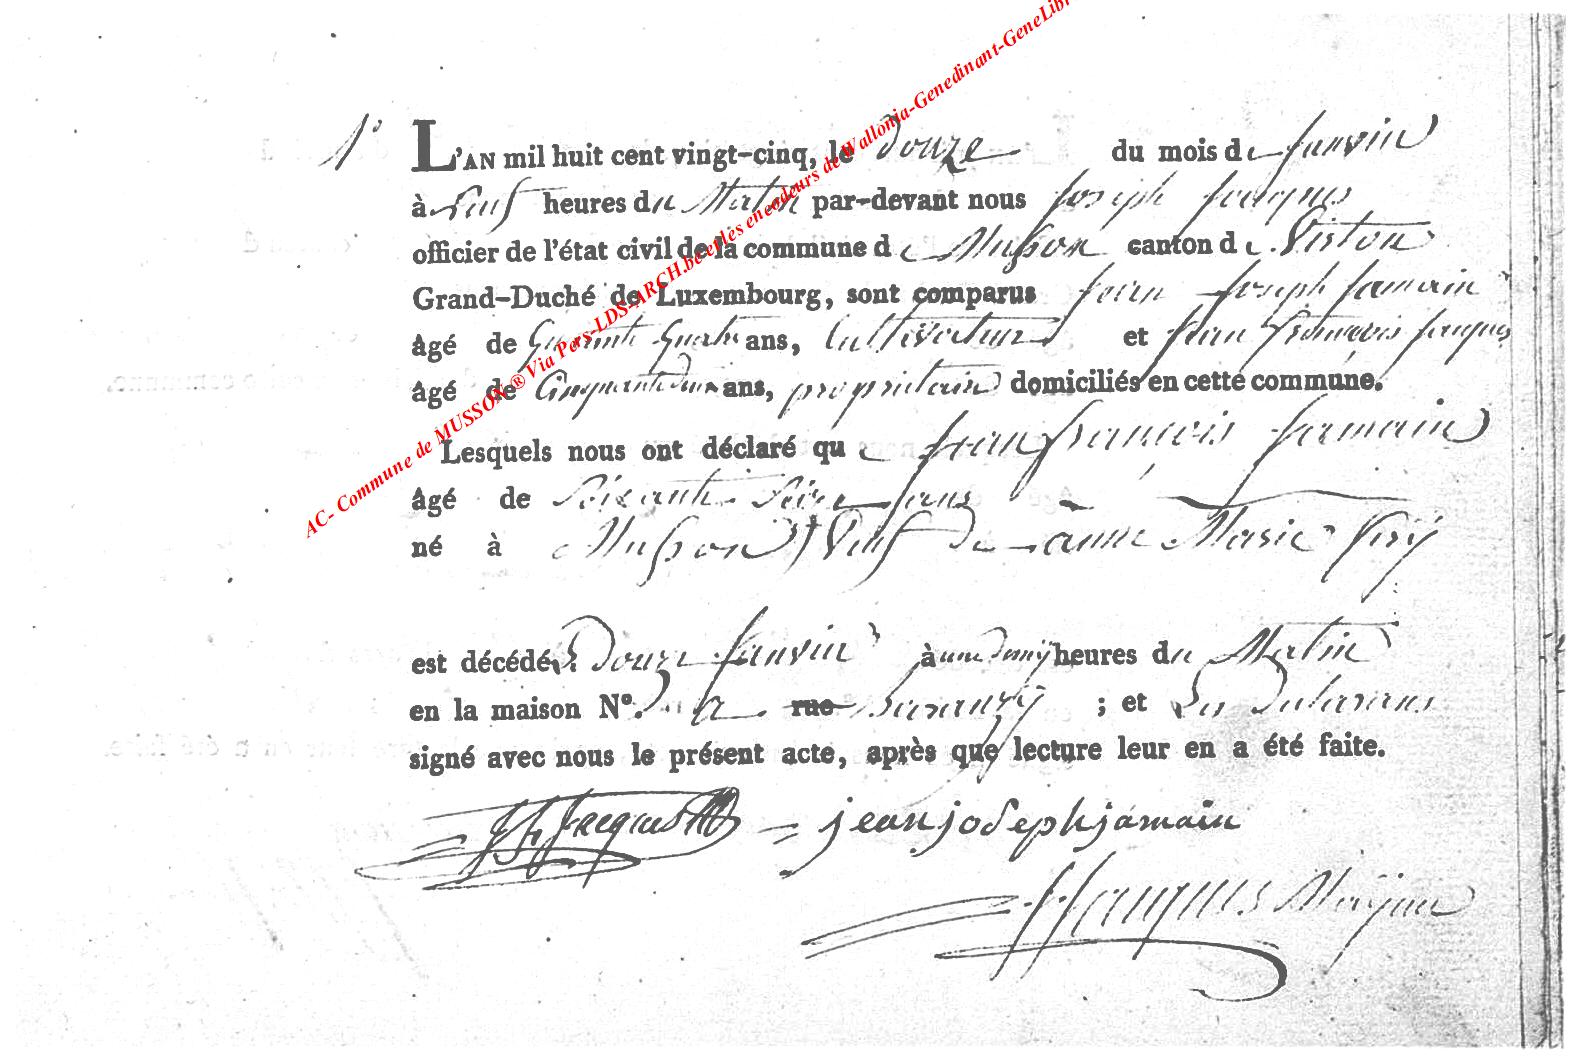 AC- Commune de MUSSON ® Via Pers-LDS-ARCH.be et les encodeurs de Wallonia-Genedinant-GeneLibr
1°
L'AN mil huit cent vingt-cinq, le douze du mois de Janvier
à Neuf heures du Matin par-devant nous Joseph Jacques
officier de l'état civil de la commune de Musson canton de Virton
Grand-Duché de Luxembourg, sont comparus Jean Joseph Jamain
agé de Quarante Quatre ans, Cultivateur et Jean François Jacques
agé de Cinquante deux ans, propriétaire domiciliés en cette commune.
Lesquels nous ont déclaré que Jean François Jamain
agé de Soixante Seize ans
né à Musson Veuf de anne Marie
est décédé le douze Janvier à une demij heures du Matin
en la maison N°. a rue Baranzij ; et Les Déclarans
signé avec nous le présent acte, après que lecture leur en a été faite.
JF Jacques jean joseph jamain
J Jacques